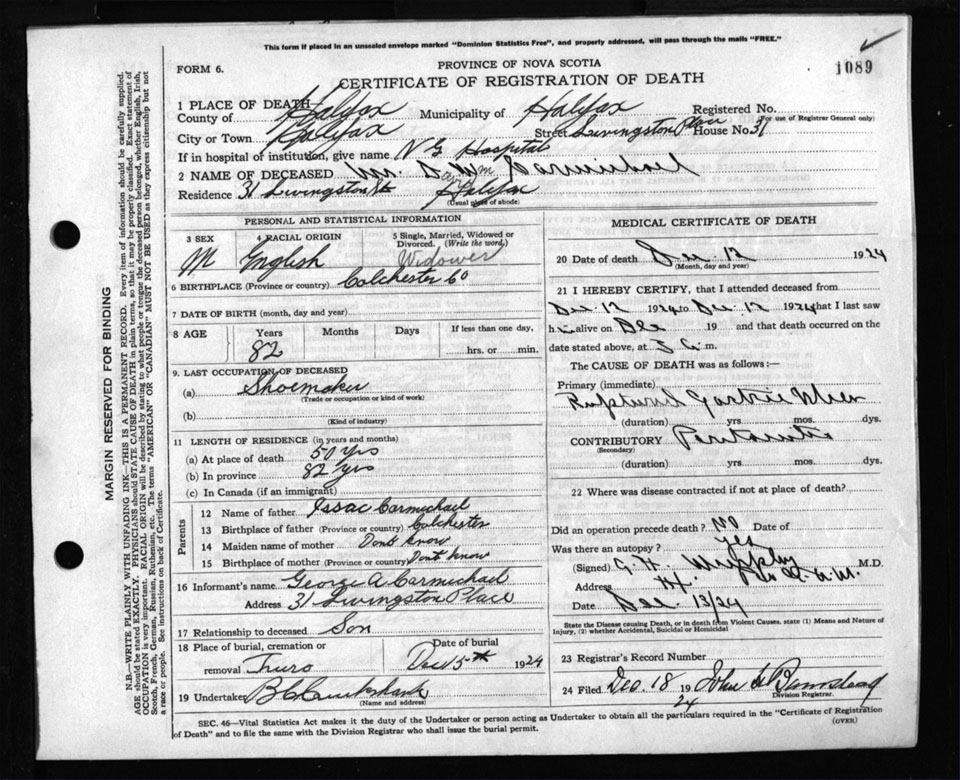 This form if placed in an unsealed envelope marked "Dominion Statistics Free", and properly addressed, will pass through the mails "FREE."
FORM 6.
PROVINCE OF NOVA SCOTIA
CERTIFICATE OF REGISTRATION OF DEATH
1089
1 PLACE OF DEATH
County of Halifax Municipality of Halifax Registered No.
(For use of Registrar General only)
City or Town Halifax Street Livingston Place House No. 31
If in hospital or institution, give name V G Hospital
2 NAME OF DECEASED Mr. Wm Carmichael
Residence 31 Livingston Halifax
(Usual place of abode)
PERSONAL AND STATISTICAL INFORMATION
3 SEX M
4 RACIAL ORIGIN English
5 Single, Married, Widowed or Divorced. (Write the word.) Widower
6 BIRTHPLACE (Province or country) Colchester Co
7 DATE OF BIRTH (month, day and year)
8 AGE Years 82 Months Days If less than one day, hrs. or min.
9. LAST OCCUPATION OF DECEASED
(a) Shoemaker
(Trade or occupation or kind of work)
(b)
(Kind of industry)
11 LENGTH OF RESIDENCE (in years and months)
(a) At place of death 50 yrs
(b) In province 82 yrs
(c) In Canada (if an immigrant)
Parents
12 Name of father Issac Carmichael
13 Birthplace of father (Province or country) Colchester
14 Maiden name of mother Dont know
15 Birthplace of mother (Province or country) Dont know
16 Informant's name George A Carmichael
Address 31 Livingston Place
17 Relationship to deceased Son
18 Place of burial, cremation or removal Truro
Date of burial Dec 15th 1924
19 Undertaker
(Name and address)
MEDICAL CERTIFICATE OF DEATH
20 Date of death Dec 12 1924
(Month, day and year)
21 I HEREBY CERTIFY, that I attended deceased from
Dec. 12 1924 to Dec. 12 1924 that I last saw
h alive on Dec 19 and that death occurred on the
date stated above, at m.
The CAUSE OF DEATH was as follows:—
Primary (immediate)
Ruptured Gastric Ulcer
(duration) yrs. mos. dys.
CONTRIBUTORY Peritonitis
(Secondary)
(duration) yrs. mos. dys.
22 Where was disease contracted if not at place of death?
Did an operation precede death? No Date of
Was there an autopsy? Yes
(Signed) G. H. Murphy M.D.
Address
Date Dec. 13/24
State the Disease causing Death, or in death from Violent Causes, state (1) Means and Nature of Injury, (2) whether Accidental, Suicidal or Homicidal
23 Registrar's Record Number
24 Filed Dec. 18 1924 John
Division Registrar.
SEC. 46—Vital Statistics Act makes it the duty of the Undertaker or person acting as Undertaker to obtain all the particulars required in the "Certificate of Registration
of Death" and to file the same with the Division Registrar who shall issue the burial permit.
(OVER)
MARGIN RESERVED FOR BINDING
N.B.—WRITE PLAINLY WITH UNFADING INK—THIS IS A PERMANENT RECORD. Every item of information should be carefully supplied.
AGE should be stated EXACTLY. PHYSICIANS should STATE CAUSE OF DEATH in plain terms, so that it may be properly classified. Exact statement of
OCCUPATION is very important. RACIAL ORIGIN will be described by stating to what people or tongue the deceased person belonged, whether English, Irish,
Scotch, French, German, Russian, Ruthenian, etc. The terms "AMERICAN" OR "CANADIAN" MUST NOT BE USED as they express citizenship but not
a race or people. See instructions on back of Certificate.